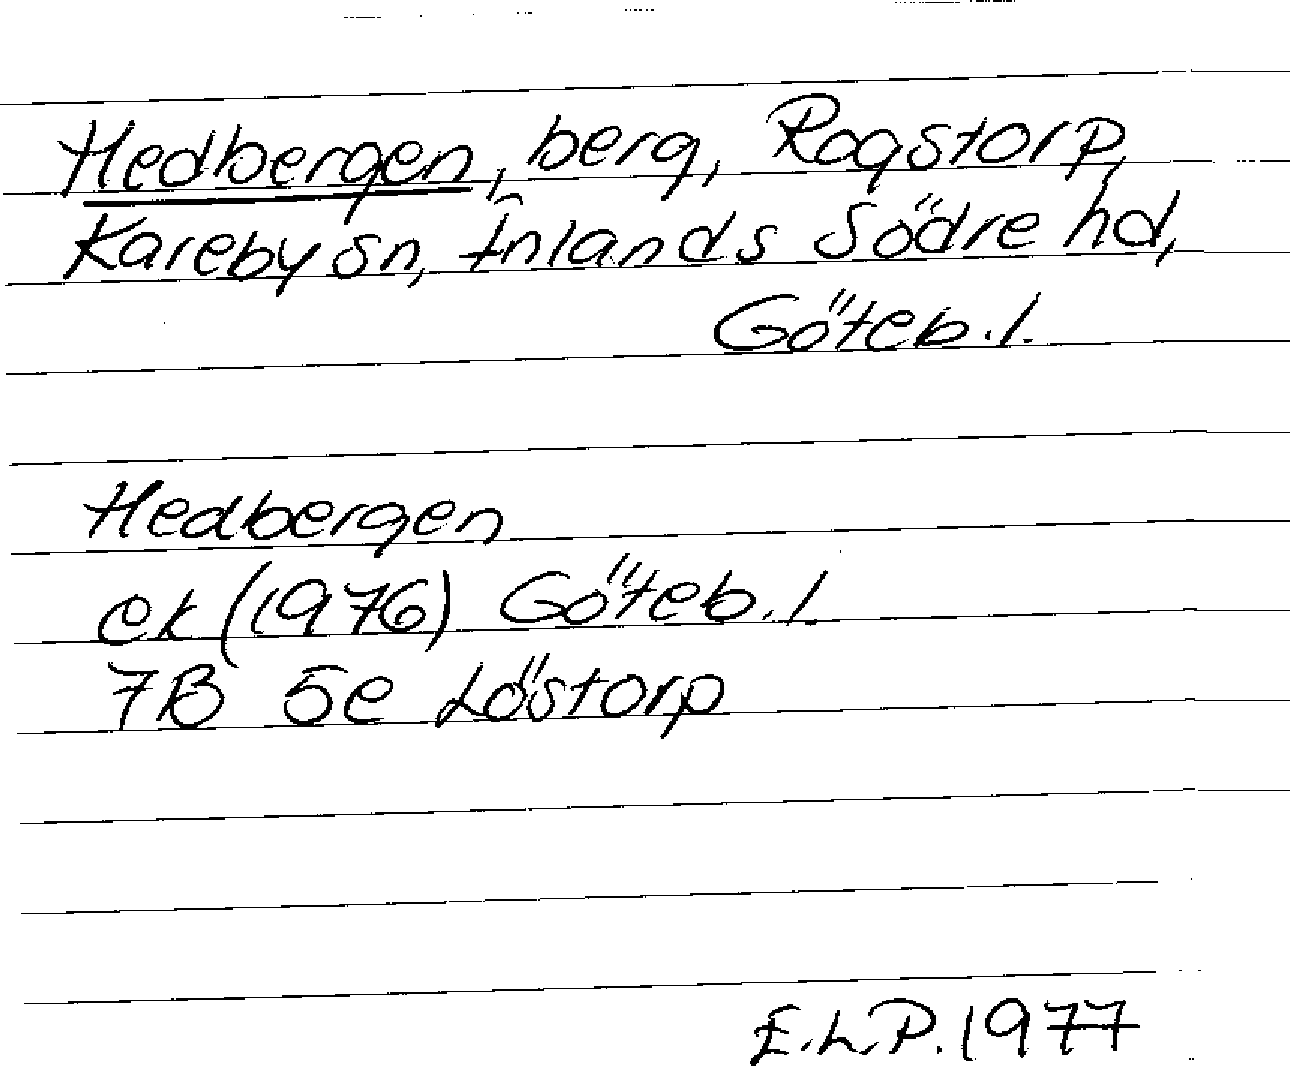 Hedbergen, berg, Rogstorp,
Kareby sn, Inlands Södre hd,
Göteb. l.
Hedbergen
ek (1976) Göteb. l.
7B 5e Löstorp
E.L.P. 1977